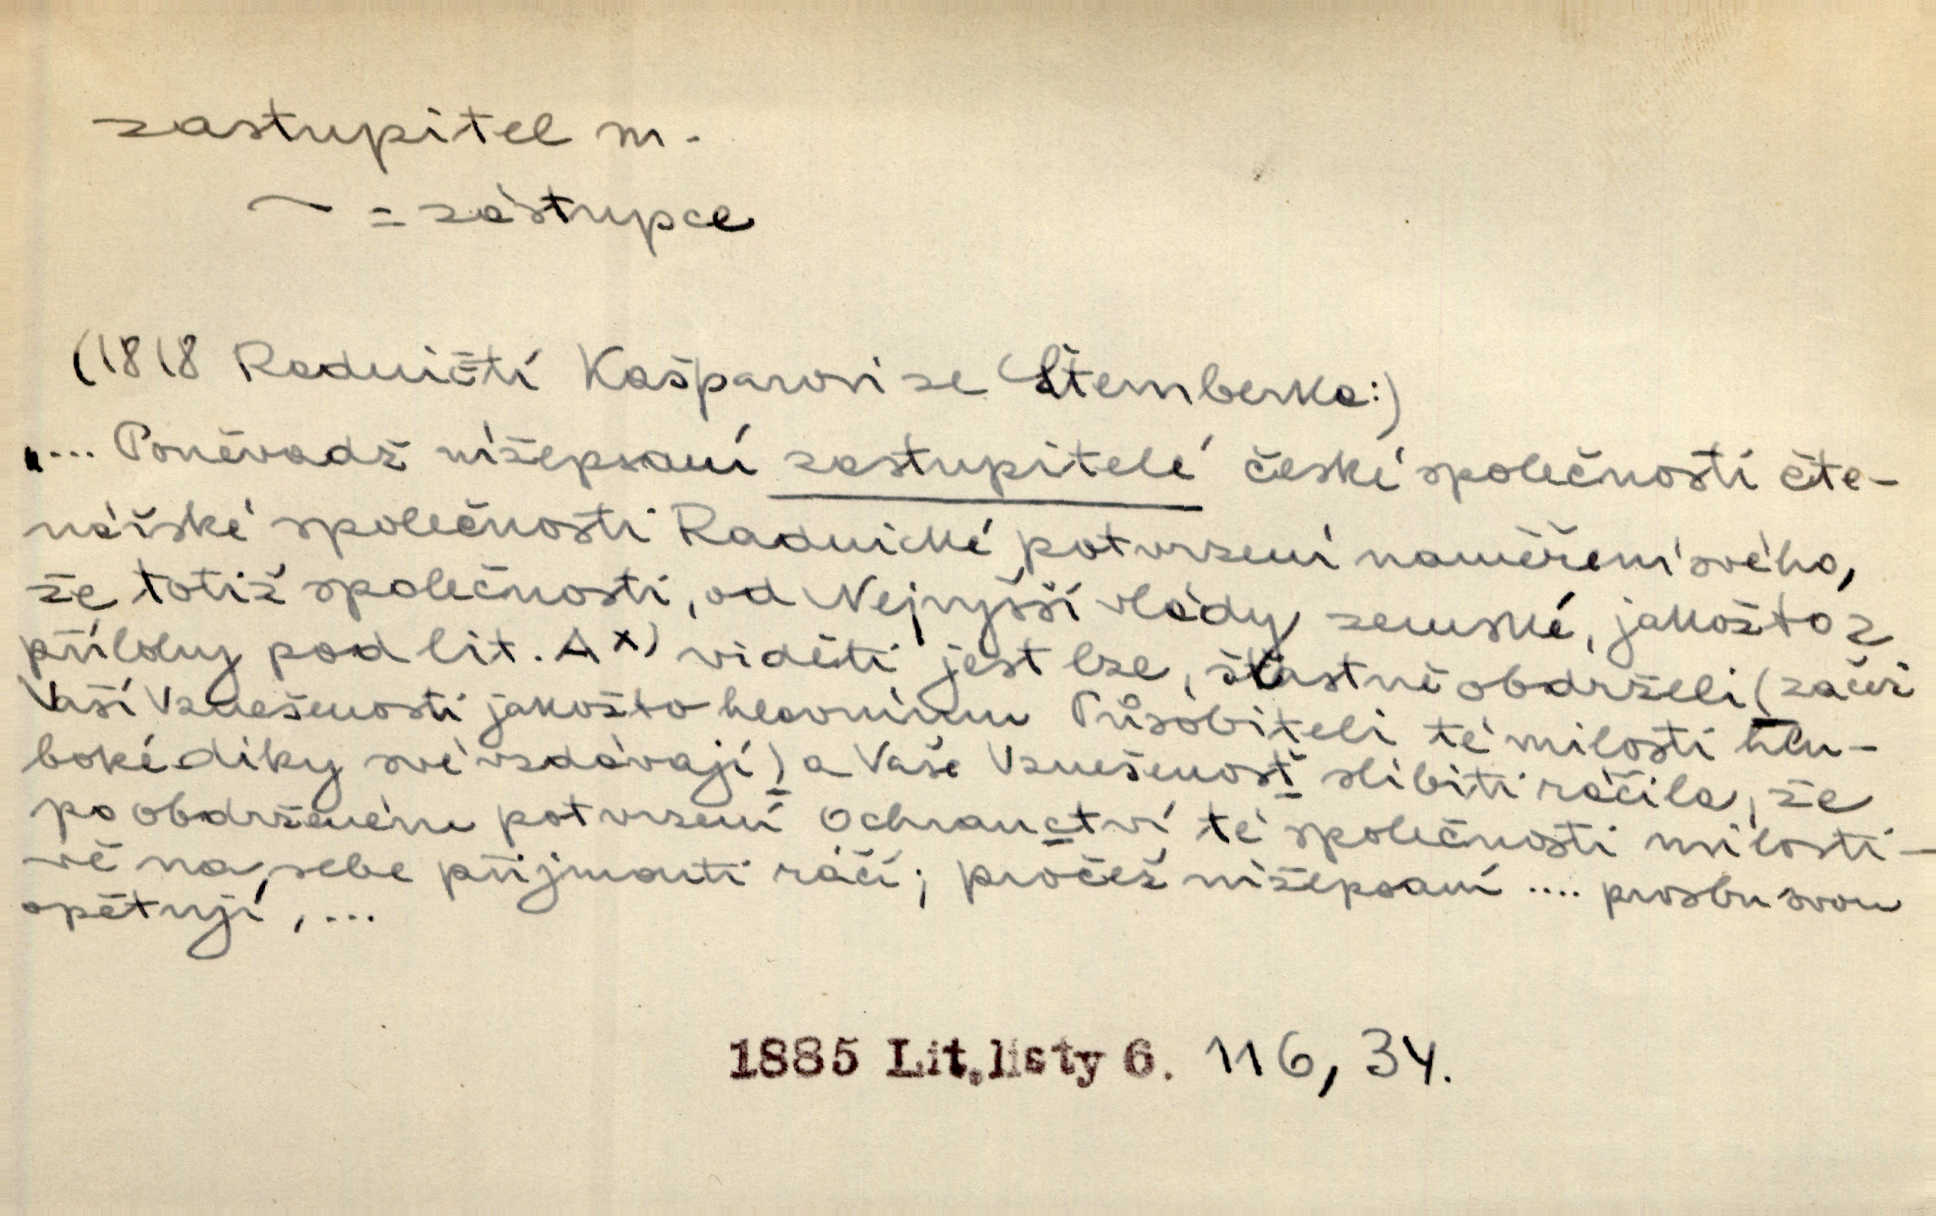 zastupitel m.
~ = zástupce
(1818 Radničtí Kašparovi ze Štemberka:)
„... Poněvadž nížepsaní zastupitelé české společnosti čte-
nářské společnosti Radnické potvrzení naměření svého,
že totiž společnosti, od Nejvyšší vlády zemské, jakožto z
přílohy pod lit. A x) viděti jest lze, šťastně obdrželi (začež
Vaší Vznešenosti jakožto hlavnímu Působiteli té milosti hlu-
boké díky své vzdávají) a Vaše Vznešenosť slíbiti ráčila, že
po obdrženém potvrzení Ochranctví té společnosti milosti-
vě na sebe přijmouti ráčí; pročež nížepsaní .... prosbu svou
opětují, ...
1885 Lit. listy 6. 116, 34.